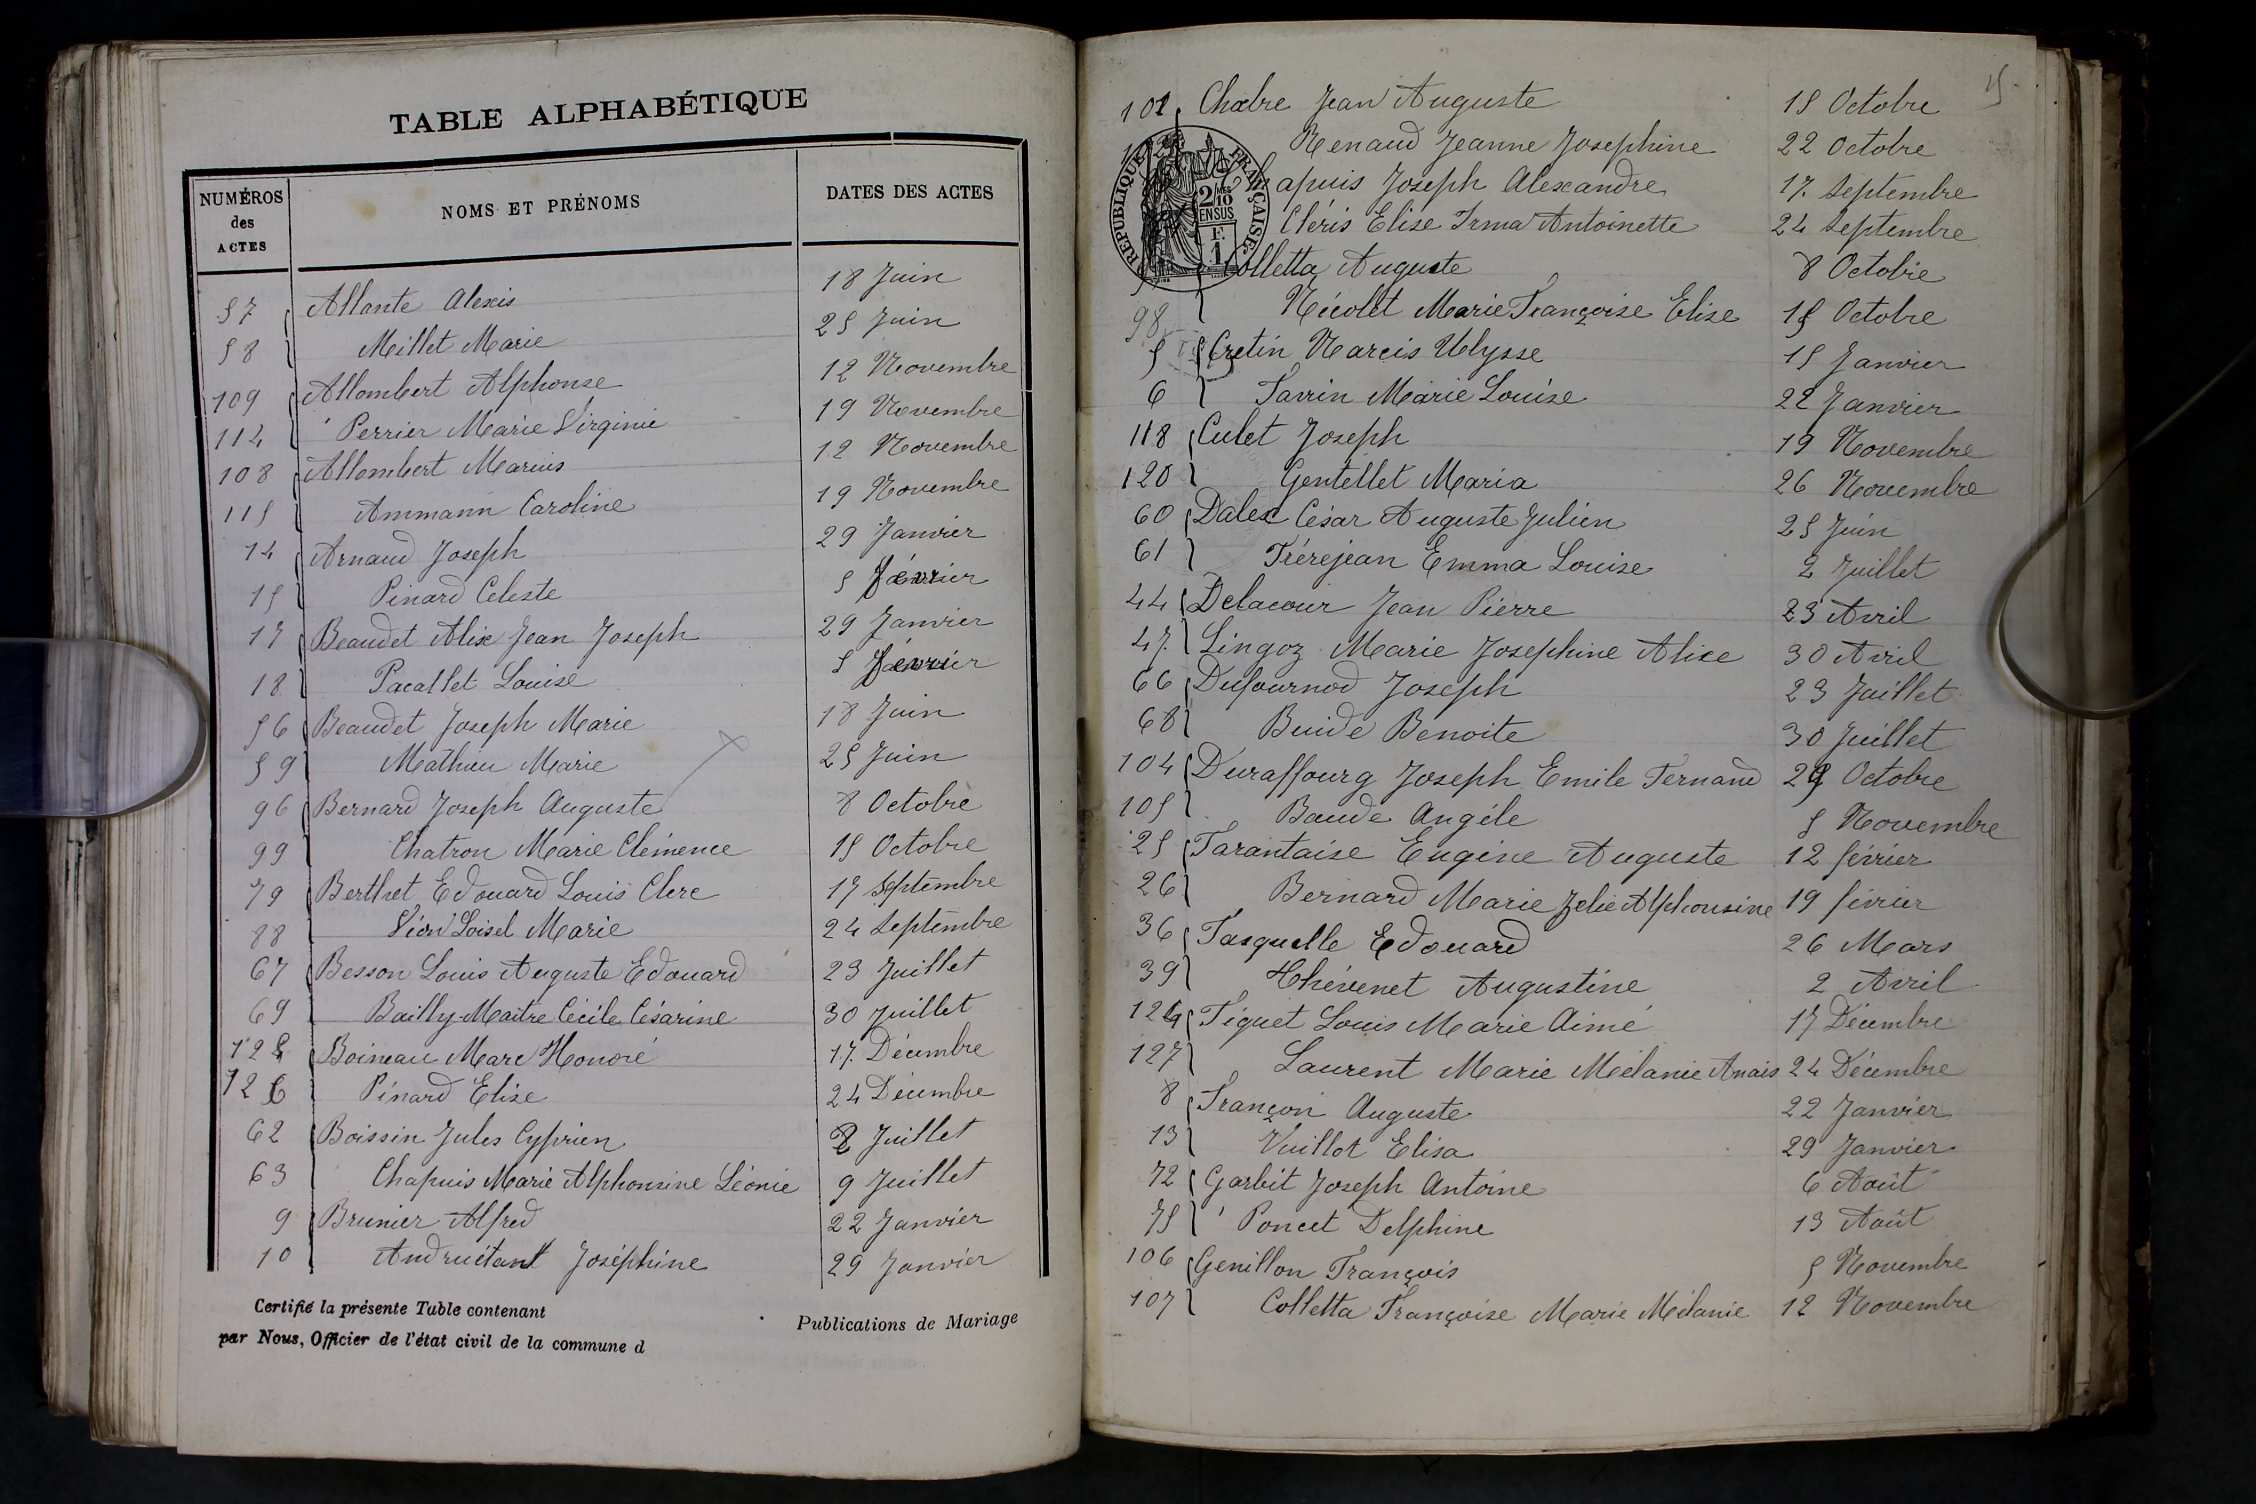 TABLE ALPHABÉTIQUE
NUMÉROS des ACTES NOMS ET PRÉNOMS DATES DES ACTES
57 Allante Alexis 18 Juin
58 Millet Marie 25 Juin
109 Allombert Alphonse 12 Novembre
114 Perrier Marie Virginie 19 Novembre
108 Allombert Marius 12 Novembre
115 Ammann Caroline 19 Novembre
14 Arnaud Joseph 29 Janvier
15 Pinard Celeste 5 février
17 Beaudet Alix Jean Joseph 29 Janvier
18 Pacallet Louise 5 février
56 Beaudet Joseph Marie 18 Juin
59 Mathieu Marie 25 Juin
96 Bernard Joseph Auguste 8 Octobre
99 Chatron Marie Clémence 15 Octobre
79 Berthet Edouard Louis Clerc 17 Septembre
88 Loisel Marie 24 Septembre
67 Besson Louis Auguste Edouard 23 Juillet
69 Bailly-Maitre Cécile Césarine 30 Juillet
125 Boineau Marc Honoré 17 Décembre
126 Pinard Elise 24 Décembre
62 Boissin Jules Cyprien 2 Juillet
63 Chapuis Marie Alphonsine Léonie 9 Juillet
9 Brunier Alfred 22 Janvier
10 Andruétant Joséphine 29 Janvier
Certifié la présente Table contenant Publications de Mariage
par Nous, Officier de l'état civil de la commune d
101 Chabre Jean Auguste 15 Octobre
Renaud Jeanne Josephine 22 Octobre
Chapuis Joseph Alexandre 17 Septembre
Cléris Elise Irma Antoinette 24 Septembre
Colletta Auguste 8 Octobre
98 Nicolet Marie Françoise Elise 15 Octobre
5 Cretin Narcis Ulysse 15 Janvier
6 Savrin Marie Louise 22 Janvier
118 Culet Joseph 19 Novembre
120 Gentellet Maria 26 Novembre
60 Dalex César Auguste Julien 25 Juin
61 Fréréjean Emma Louise 2 Juillet
44 Delacour Jean Pierre 23 Avril
47 Lingoz Marie Josephine Alice 30 Avril
66 Dufournod Joseph 23 Juillet
68 Buide Benoite 30 Juillet
104 Duraffourg Joseph Emile Fernand 29 Octobre
105 Baude Angèle 5 Novembre
25 Farantaise Eugène Auguste 12 février
26 Bernard Marie Zelie Alphonsine 19 février
36 Fasquelle Edouard 26 Mars
39 Thévenet Augustine 2 Avril
124 Figuet Louis Marie Aimé 17 Décembre
127 Laurent Marie Mélanie Anais 24 Décembre
8 Françon Auguste 22 Janvier
13 Vuillot Elisa 29 Janvier
72 Garbit Joseph Antoine 6 Août
75 Poncet Delphine 13 Août
106 Genillon François 5 Novembre
107 Colletta Françoise Marie Mélanie 12 Novembre
RÉPUBLIQUE FRANÇAISE
2/10 EN SUS
F. 1